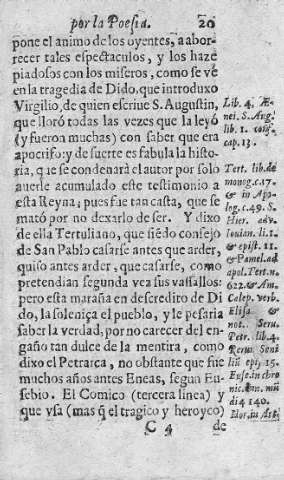 por la Poesia. 20
pone el animo de los oyentes, a abor-
recer tales espectaculos, y los haze
piadosos con los miseros, como se vè
en la tragedia de Dido, que introduxo
Virgilio, de quien escriue S. Augustin,
que llorò todas las vezes que la leyò
(y fueron muchas) con saber que era
apocrifo: y de suerte es fabula la histo-
ria, q̃ se condenarà el autor por solo
auerle acumulado este testimonio a
esta Reyna; pues fue tan casta, que se
matò por no dexarlo de ser. Y dixo
de ella Tertuliano, que siẽdo consejo
de San Pablo casarse antes que arder,
quiso antes arder, que casarse, como
pretendian segunda vez sus vassallos:
pero esta maraña en descredito de Di
do, la soleniça el pueblo, y le pesaria
saber la verdad, por no carecer del en-
gaño tan dulce de la mentira, como
dixo el Petrarca, no obstante que fue
muchos años antes Eneas, segun Eu-
sebio. El Comico (tercera linea) y
que vsa (mas q̃ el tragico y heroyco)
C 4 de
Lib. 4. Æ-
nei. S. Aug.
lib. 1. conf.
cap. 13.
Tert. lib. de
monog. c. 17.
& in Apo-
log. c. 49. S.
Hier. adv.
Iouian. li. 1.
& epist. 11.
& Pamel. ad
apol. Tert. n.
622. & Am.
Calep. verb.
Elisa &
not. Seru.
Petr. lib. 4.
Rerum Seni
liũ epis. 15.
Euse. in chro
nic. Ann. mũ
di 4140.